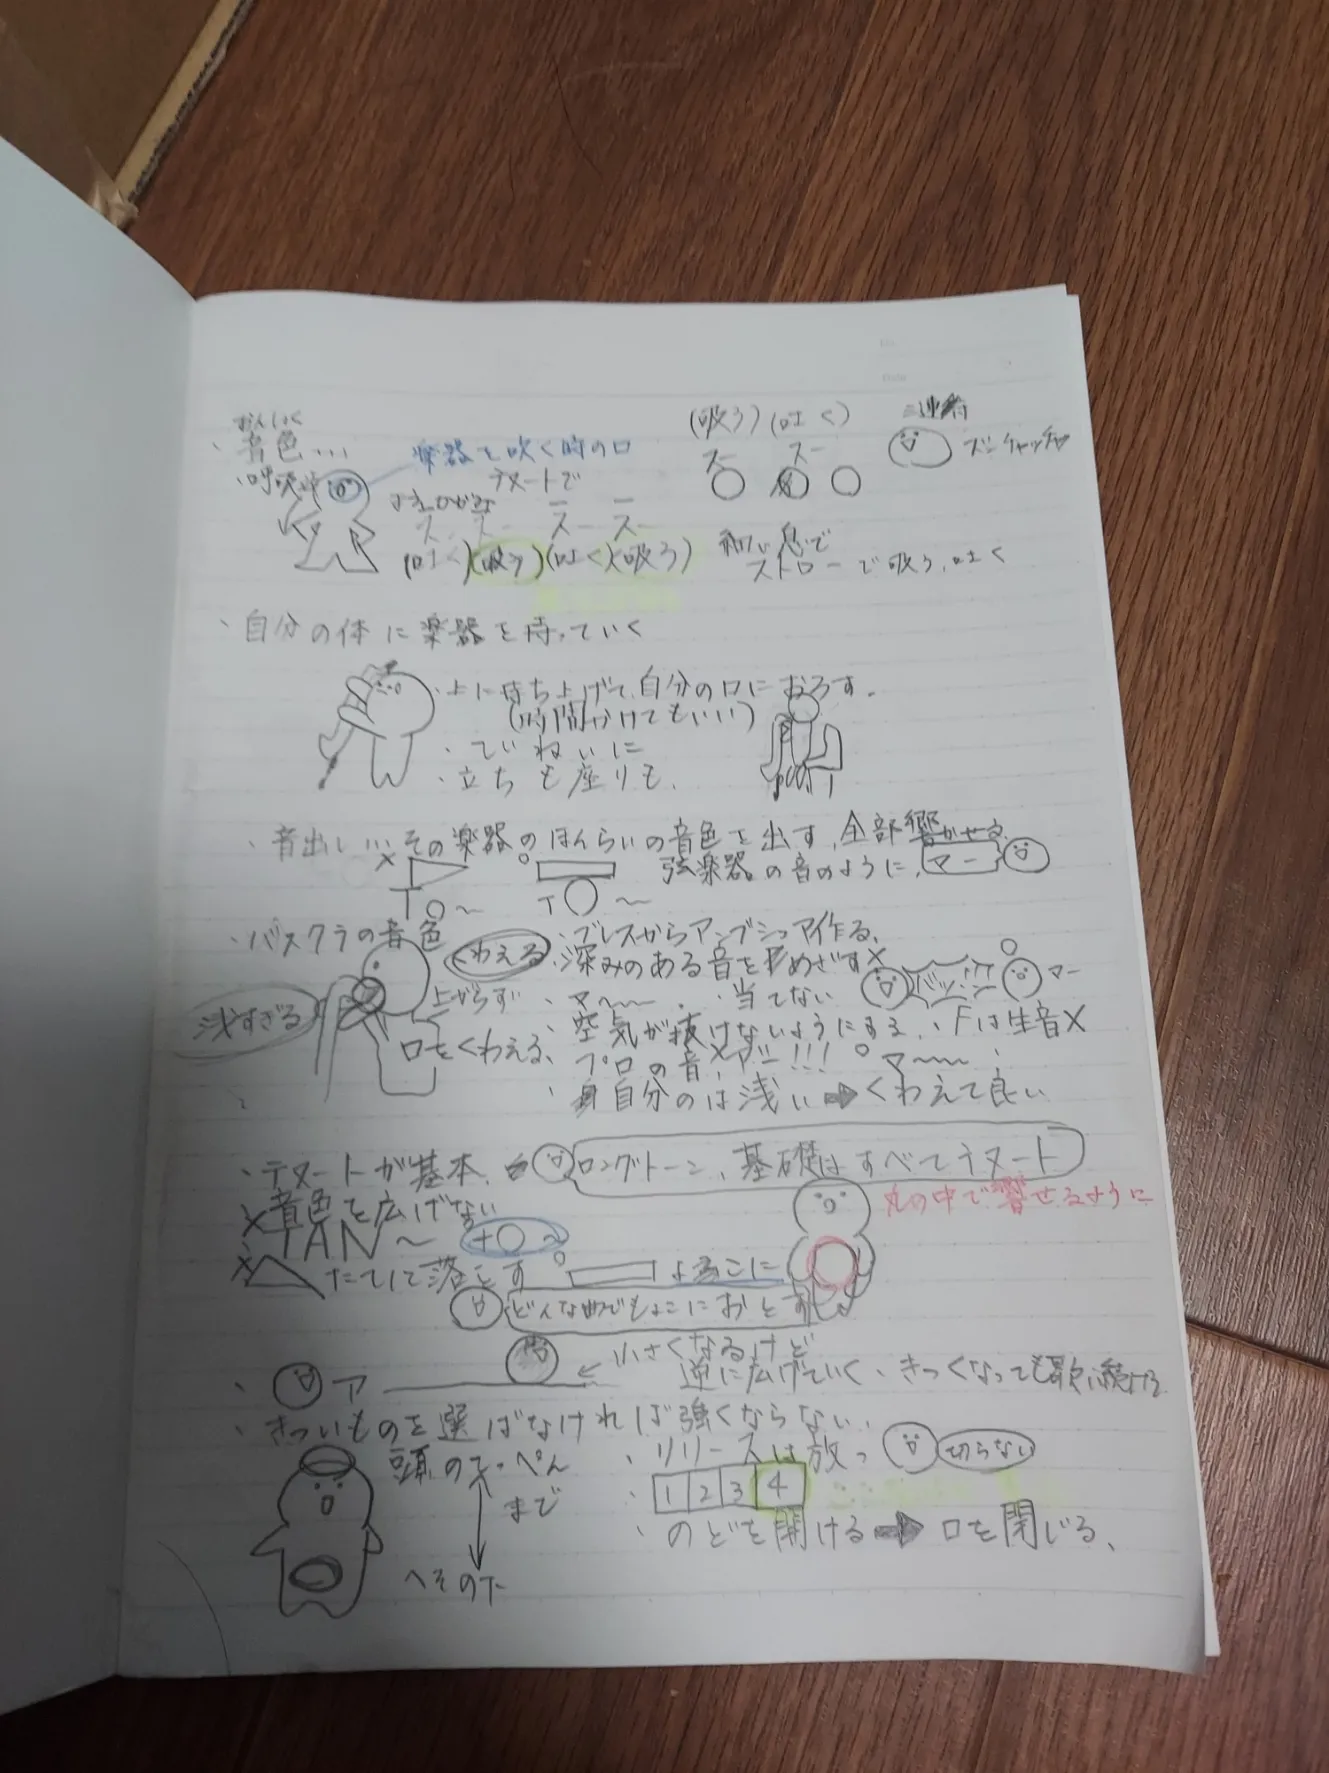 おんしょく
・音色…
・呼吸
楽器を吹く時の口
テヌートで
スー スー スー
(吐く)(吸う)(吐く)(吸う)
(吸う)(吐く)
スー スー
三連符
ズンチャッチャ
細い息で
ストローで吸う、吐く
・自分の体に楽器を持っていく
・上に持ち上げて、自分の口におろす。
(時間かけてもいい)
・ていねいに
・立ちも座りも、
・音出し…その楽器のほんらいの音色を出す、全部響かせる
× ○ 弦楽器の音のように、マー
TO〜 TO〜
・バスクラの音色
くわえる
・ブレスからアンブシュア作る、
・深みのある音をめざす×
上がらず
浅すぎる
口をくわえる、
・マ〜 ・当てない
○ マー
・空気が抜けないようにする、・Fは生音×
・プロの音、× !!! ○ マ〜
・自分のは浅い➡くわえて良い
・テヌートが基本、
ロングトーン、基礎はすべてテヌート
×音色を広げない
丸の中で響せるように
×TAN〜 TO〜
× たてに落とす ○ よこに
どんな曲でもよこにおとす
・ア
←小さくなるけど
逆に広げていく、きつくなっても歌い続ける
・きついものを選ばなければ強くならない、
頭のてっぺん
まで
へその下
・リリースは放つ 切らない
・1 2 3 4
・のどを開ける➡口を閉じる、